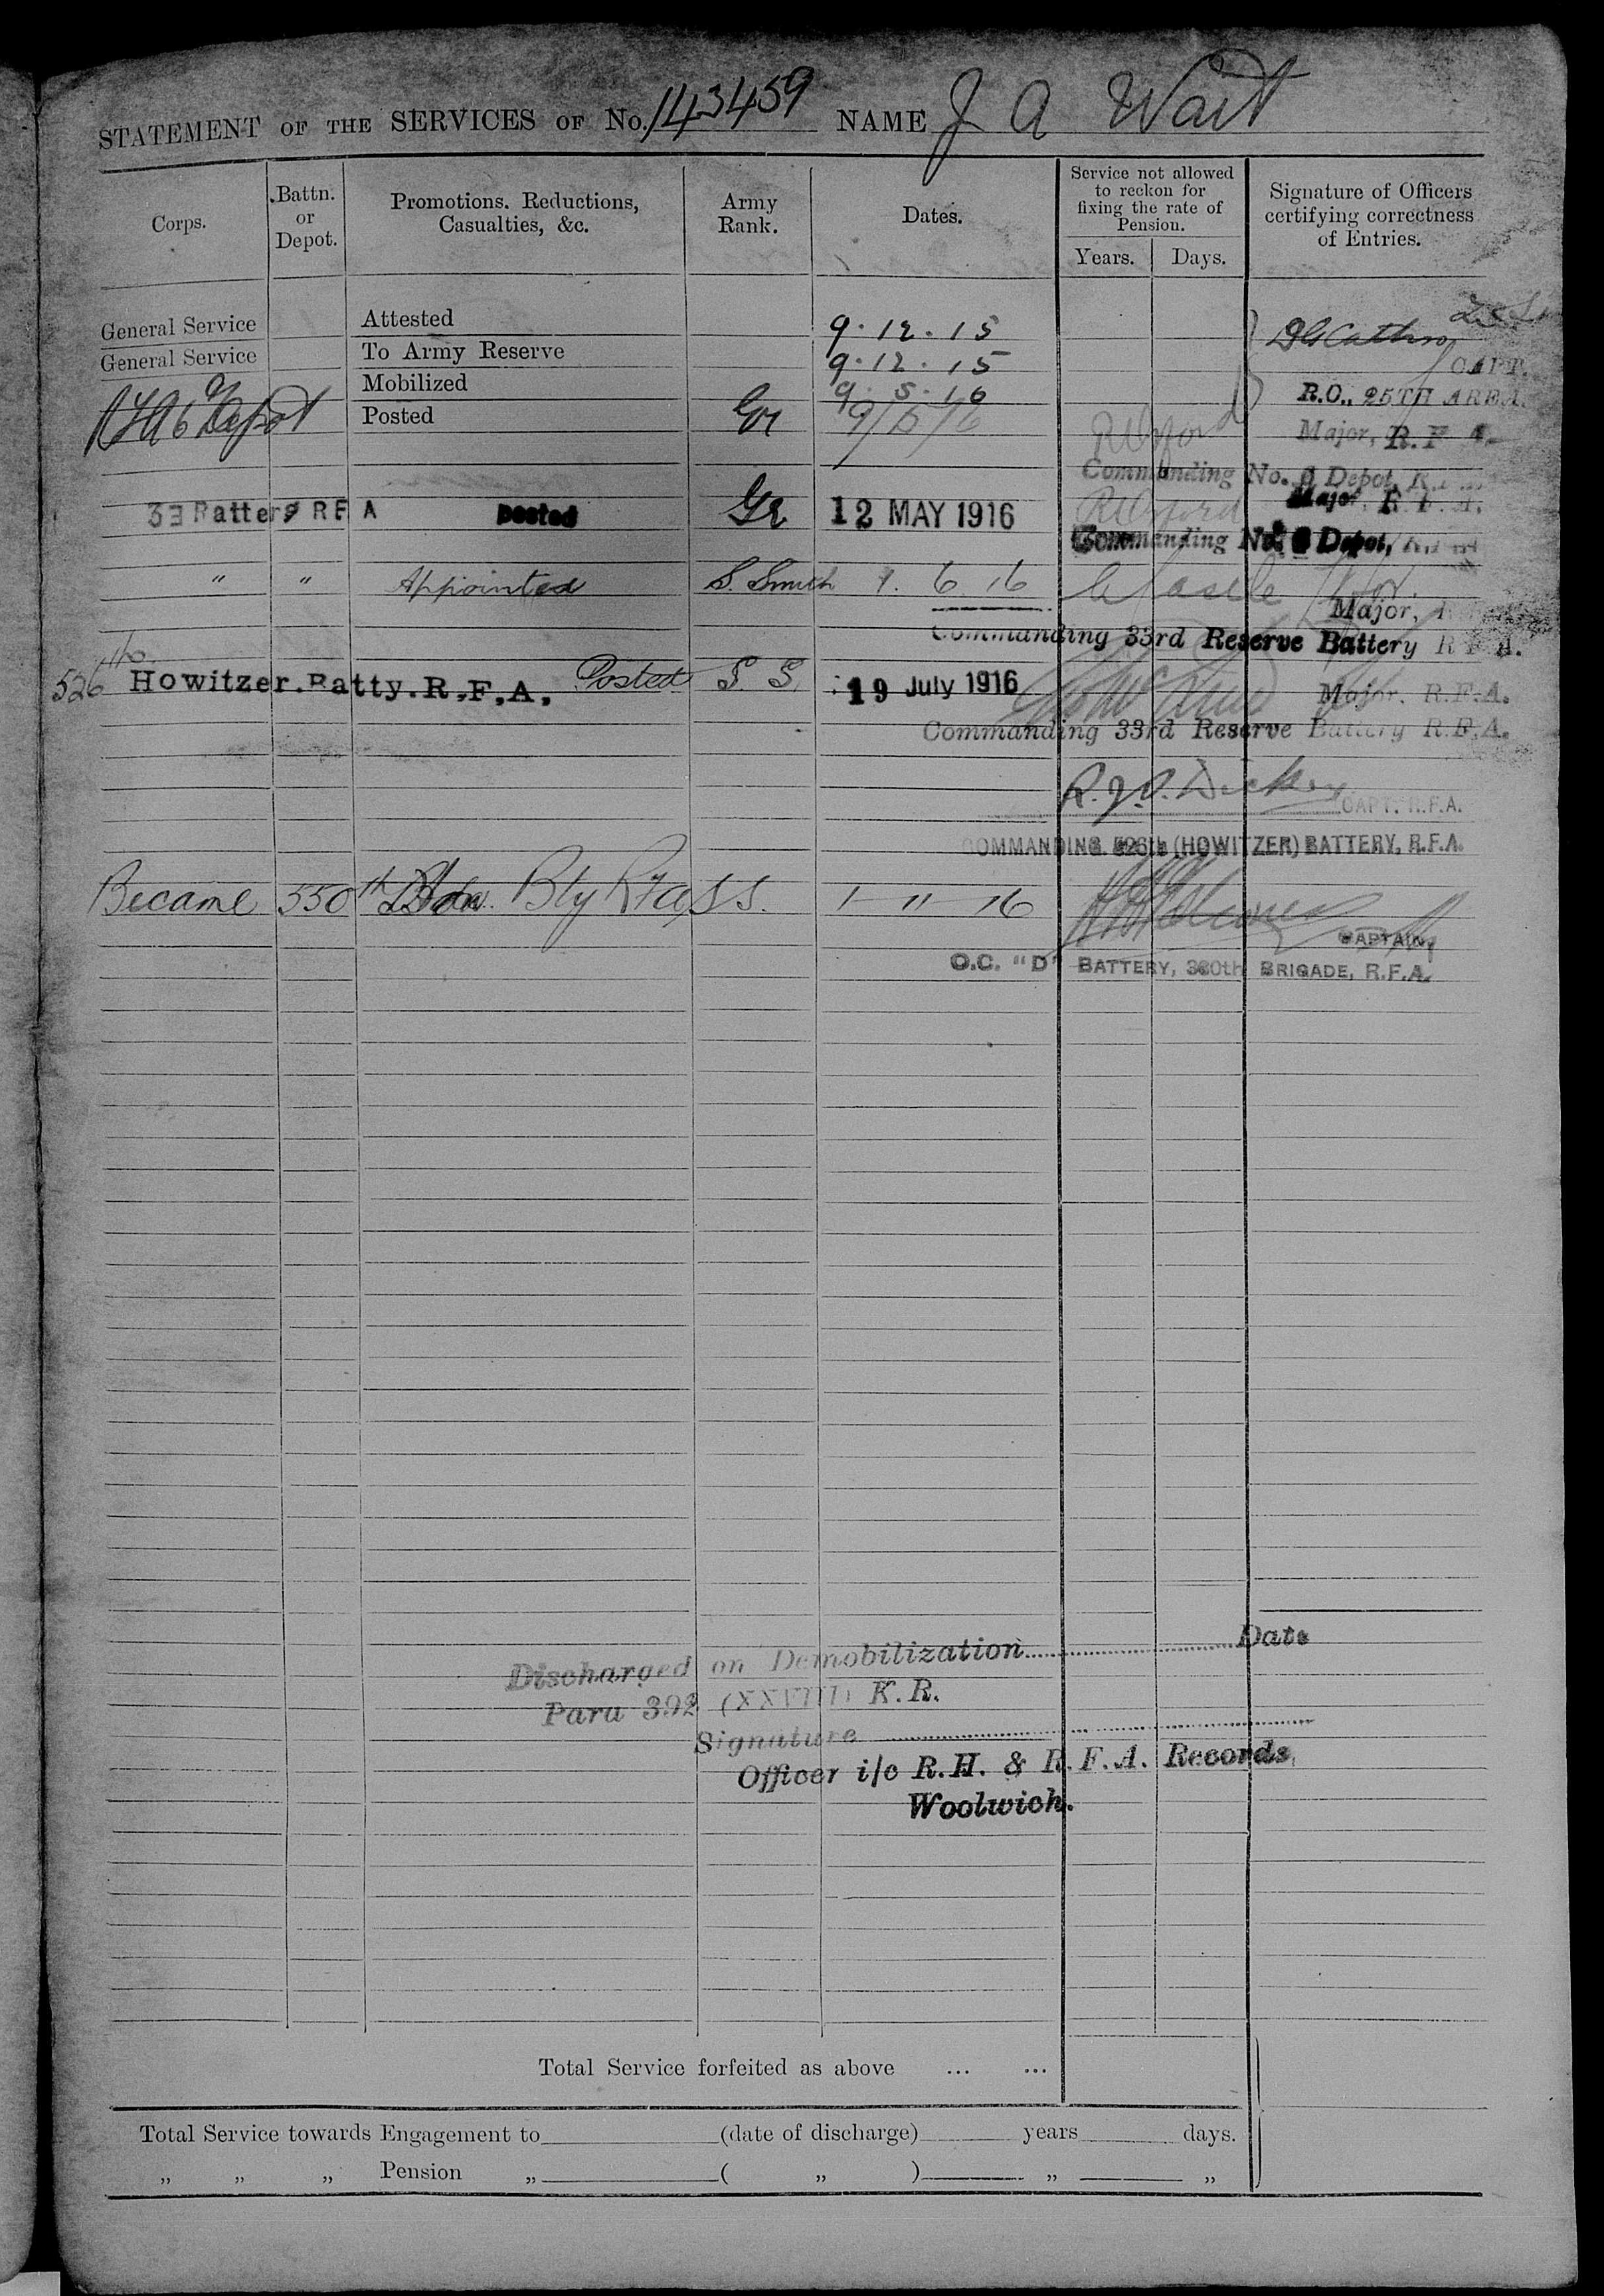 STATEMENT OF THE SERVICES OF No. 143459 NAME J A Wait
Corps.
Battn. or Depot.
Promotions. Reductions, Casualties, &c.
Army Rank.
Dates.
Service not allowed to reckon for fixing the rate of Pension.
Years.
Days.
Signature of Officers certifying correctness of Entries.
General Service Attested 9.12.15
General Service To Army Reserve 9.12.15 CAPT.
Mobilized 9.5.16 R.O., 25TH AREA.
RFA 6 Depot Posted Gr 9/5/16 Major, R.F.A.
Commanding No. 6 Depot, R.F.A.
33 Battery RFA posted Gr 12 MAY 1916 Major, R.F.A.
Commanding No. 6 Depot,
" " Appointed S. Smith 1.6.16
Major,
Commanding 33rd Reserve Battery R F A.
526 Howitzer.Batty.R.F.A. Posted S. S. 19 July 1916 Major. R.F.A.
Commanding 33rd Reserve Battery R.F.A.
CAPT. R.F.A.
COMMANDING 526th (HOWITZER) BATTERY, R.F.A.
Became 550th Bty RFA SS. 1 " 16
CAPTAIN
O.C. "D" BATTERY, 380th BRIGADE, R.F.A.
Discharged on Demobilization Date
Para 392 (XXVIII) K.R.
Signature
Officer i/c R.H. & R.F.A. Records,
Woolwich.
Total Service forfeited as above ... ...
Total Service towards Engagement to (date of discharge) years days.
" " " Pension " ( " ) " "